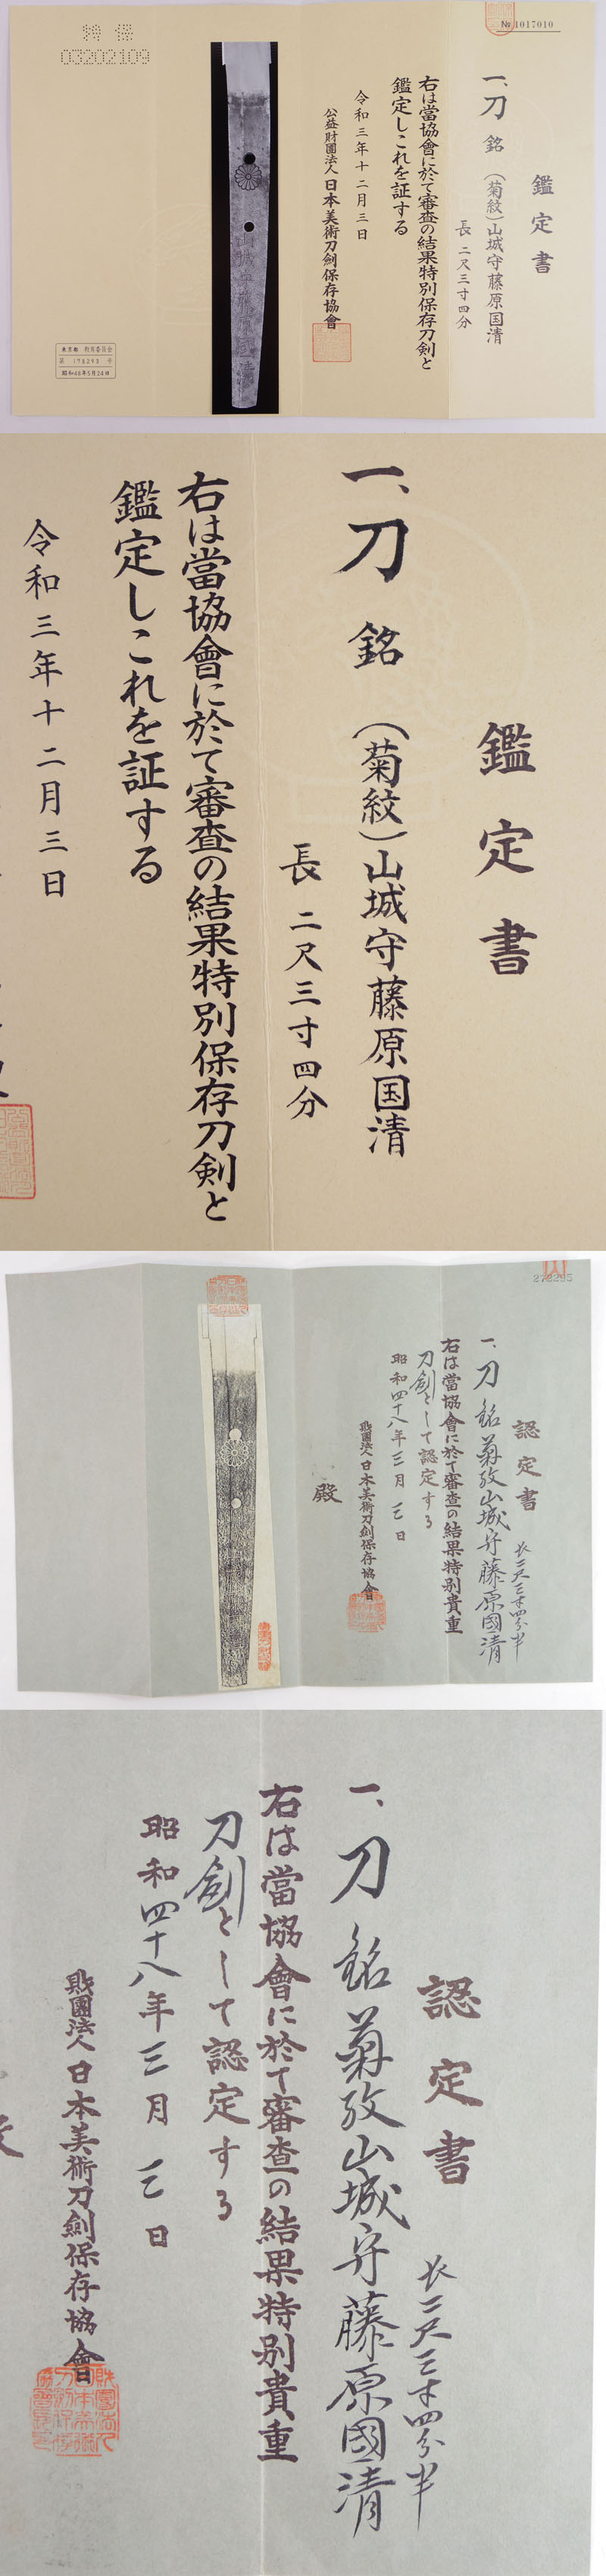 特保
03202109
№ 1017010
鑑定書
一、刀 銘 (菊紋)山城守藤原国清
長 二尺三寸四分
右は當協會に於て審査の結果特別保存刀剣と
鑑定しこれを証する
令和三年十二月三日
公益財團法人 日本美術刀劍保存協會
東京都 教育委員会
昭和48年5月24日
鑑定書
一、刀 銘 (菊紋)山城守藤原国清
長 二尺三寸四分
右は當協會に於て審査の結果特別保存刀剣と
鑑定しこれを証する
令和三年十二月三日
認定書
長二尺三寸四分半
一、刀 銘 菊紋山城守藤原國清
右は當協會に於て審査の結果特別貴重
刀劍として認定する
昭和四十八年三月 三日
財團法人 日本美術刀劍保存協會
殿
認定書
長二尺三寸四分半
一、刀 銘 菊紋山城守藤原國清
右は當協會に於て審査の結果特別貴重
刀劍として認定する
昭和四十八年三月 三日
財團法人 日本美術刀劍保存協會